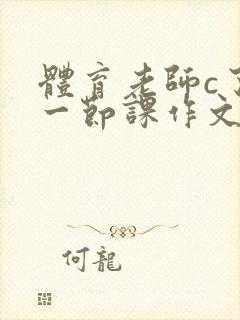 體育老師c了
一節課作文
何龍